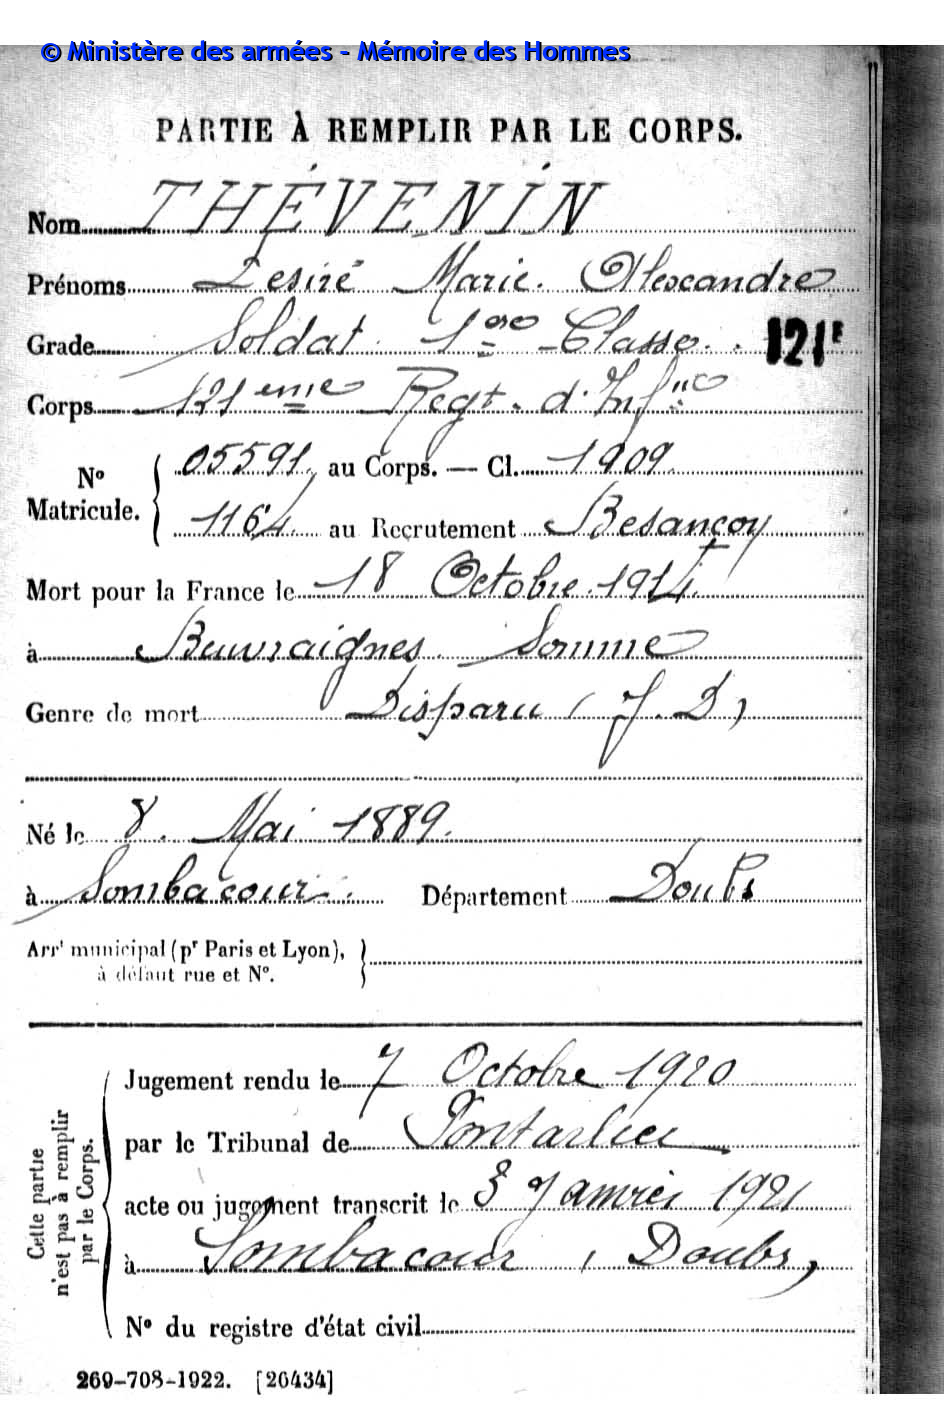 © Ministère des armées - Mémoire des Hommes
PARTIE À REMPLIR PAR LE CORPS.
Nom THÉVENIN
Prénoms Désiré Marie Alexandre
Grade Soldat 1ère Classe. 121e
Corps 121ème Regt. d'Infie
No Matricule. { 05591 au Corps. — Cl. 1909
1164 au Recrutement Besançon
Mort pour la France le 18 Octobre 1914
à Beuvraignes Somme
Genre de mort Disparu (J.D)
Né le 8 Mai 1889.
à Sombacour. Département Doubs
Arrt municipal (pr Paris et Lyon), }
à défaut rue et No.
Cette partie
n'est pas à remplir
par le Corps.
Jugement rendu le 7 Octobre 1920
par le Tribunal de Pontarlier
acte ou jugement transcrit le 3 Janvier 1921
à Sombacour (Doubs)
No du registre d'état civil
269-708-1922. [26434]